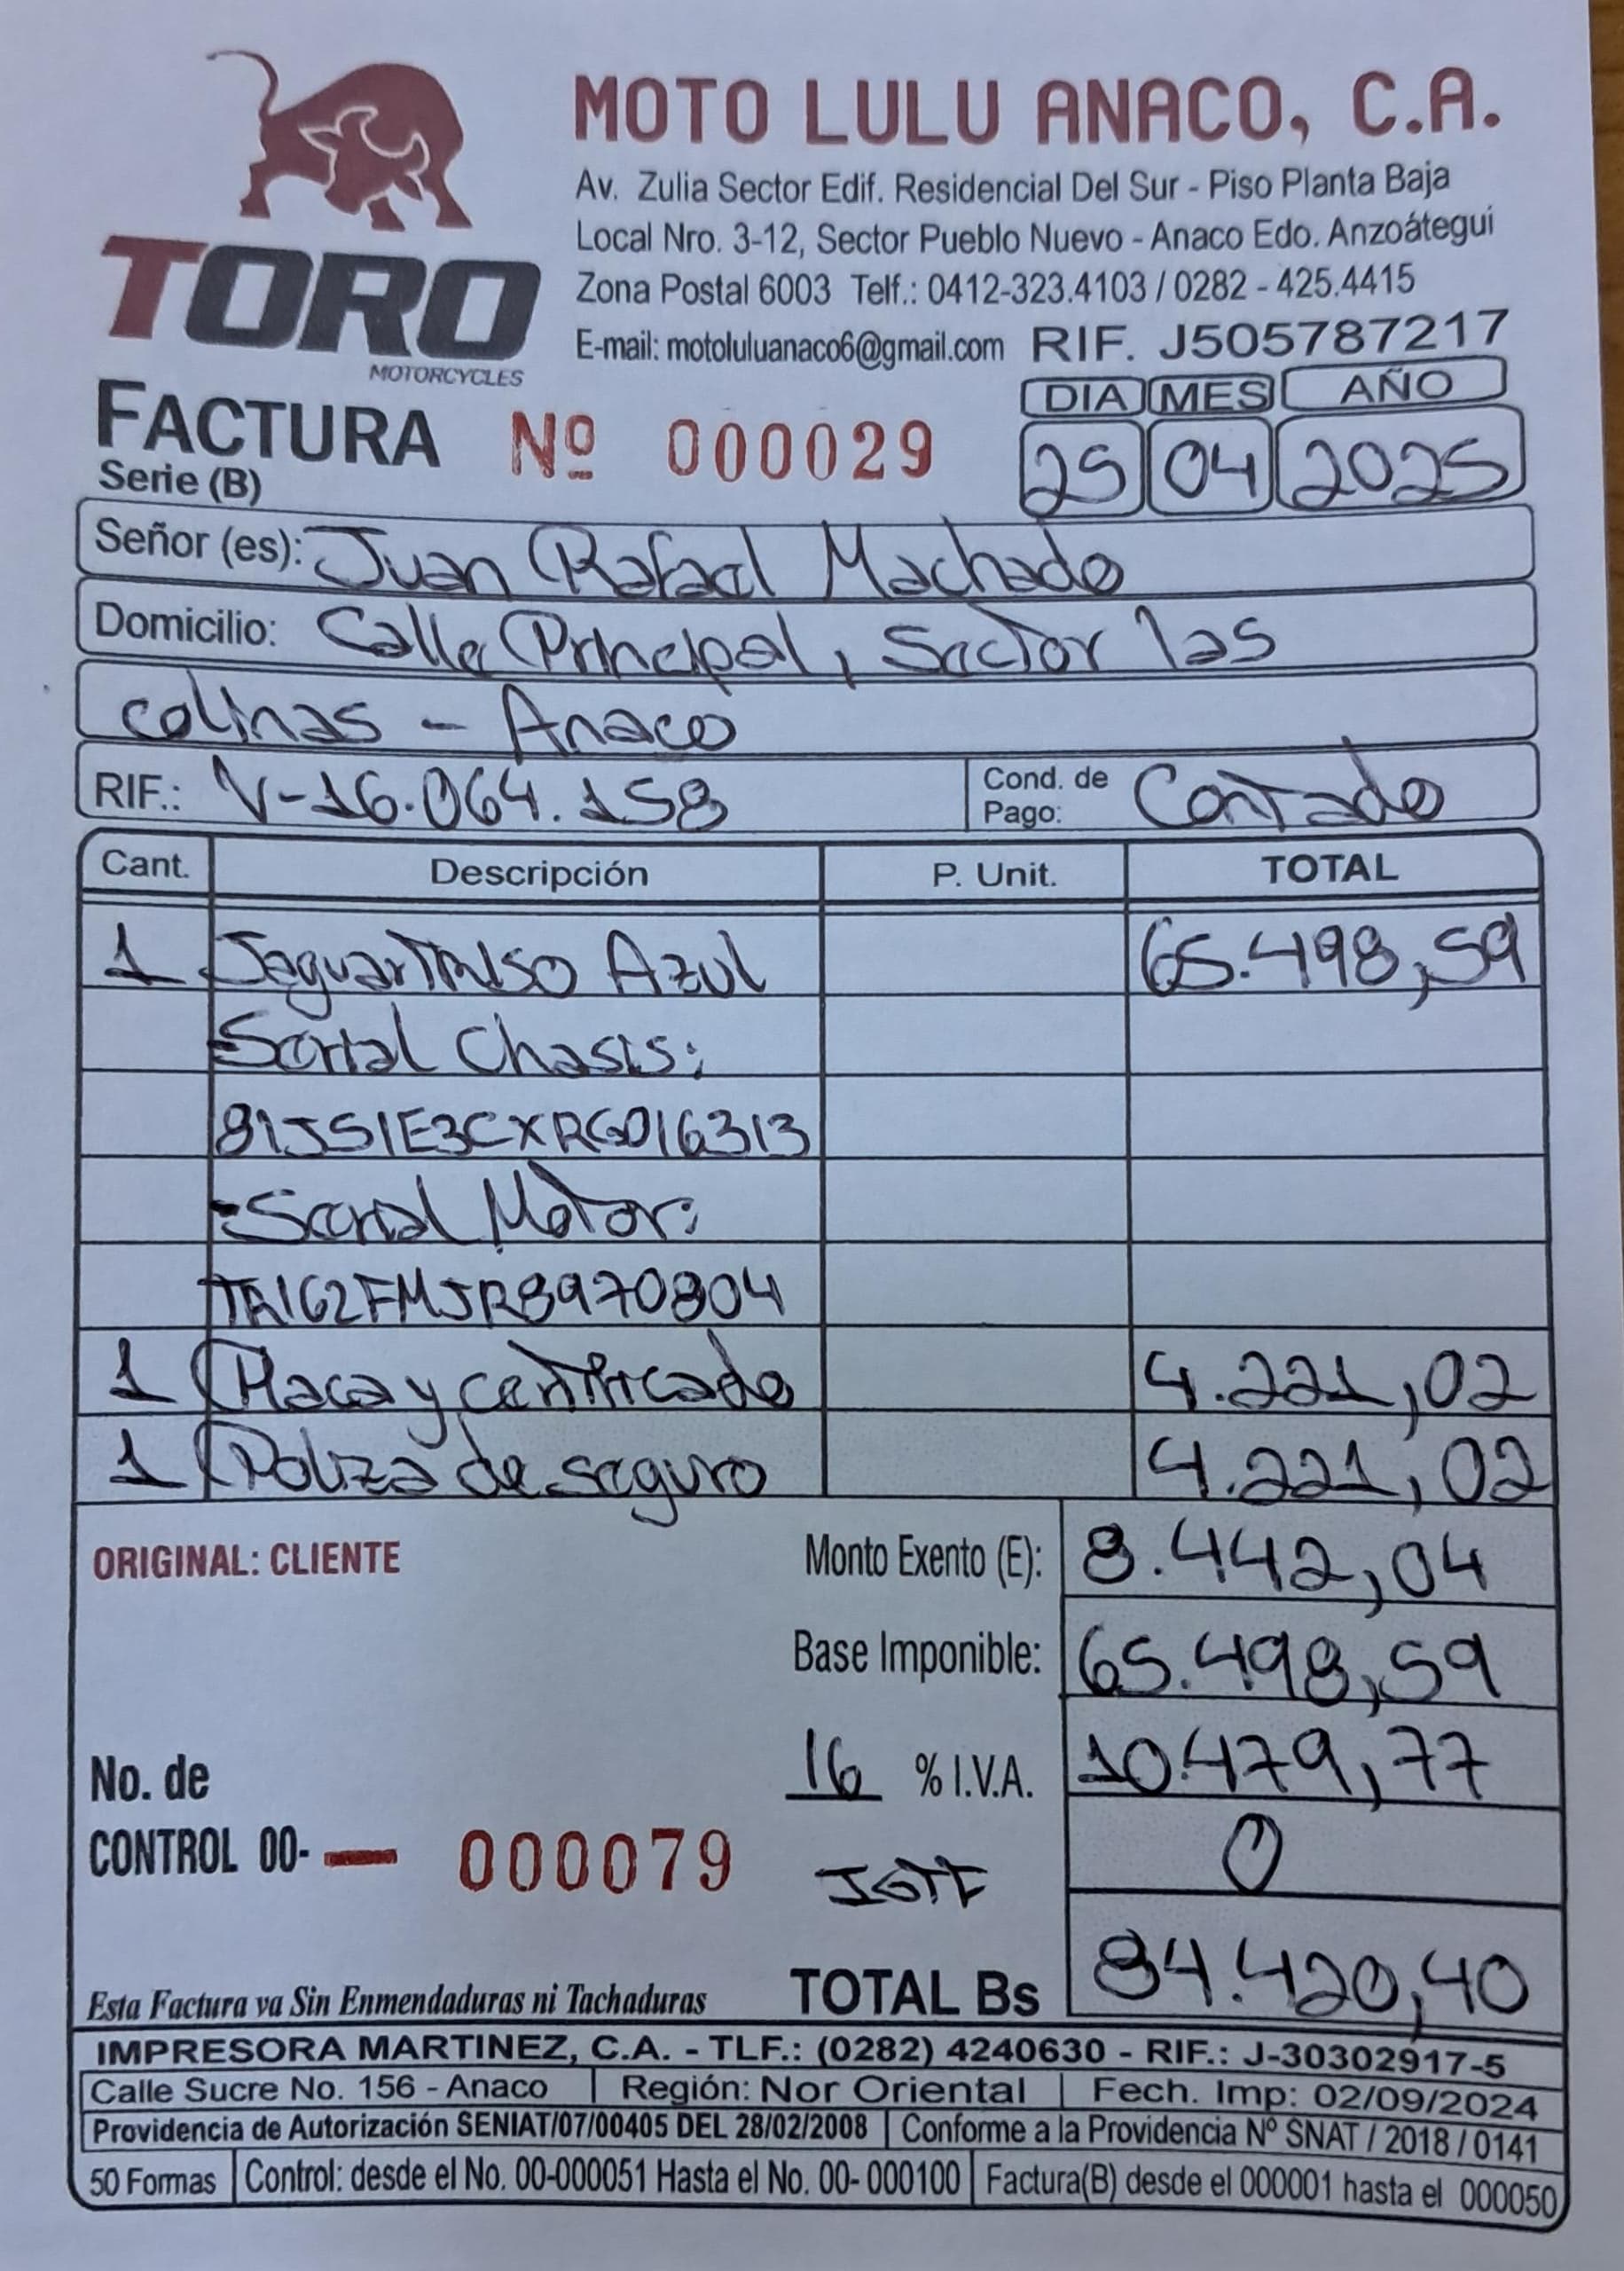 MOTO LULU ANACO, C.A.
Av. Zulia Sector Edif. Residencial Del Sur - Piso Planta Baja
Local Nro. 3-12, Sector Pueblo Nuevo - Anaco Edo. Anzoátegui
Zona Postal 6003 Telf.: 0412-323.4103 / 0282 - 425.4415
E-mail: motoluluanaco6@gmail.com RIF. J505787217
TORO
MOTORCYCLES
DIA MES AÑO
FACTURA Nº 000029
25 04 2025
Serie (B)
Señor (es): Juan Rafael Machado
Domicilio: Calle Principal, Sector las
colinas - Anaco
RIF.: V-16.064.158 Cond. de Pago: Contado
Cant. Descripción P. Unit. TOTAL
1 Jaguar TR150 Azul 65.498,59
-Serial Chasis:
81JS1E3CXRG016313
-Serial Motor:
TA162FMJRB970804
1 Placa y certificado 4.221,02
1 Poliza de seguro 4.221,02
ORIGINAL: CLIENTE
Monto Exento (E): 8.442,04
Base Imponible: 65.498,59
16 % I.V.A. 10.479,77
No. de
CONTROL 00- — 000079
IGTF 0
Esta Factura va Sin Enmendaduras ni Tachaduras
TOTAL Bs 84.420,40
IMPRESORA MARTINEZ, C.A. - TLF.: (0282) 4240630 - RIF.: J-30302917-5
Calle Sucre No. 156 - Anaco Región: Nor Oriental Fech. Imp: 02/09/2024
Providencia de Autorización SENIAT/07/00405 DEL 28/02/2008 Conforme a la Providencia Nº SNAT / 2018 / 0141
50 Formas Control: desde el No. 00-000051 Hasta el No. 00- 000100 Factura(B) desde el 000001 hasta el 000050